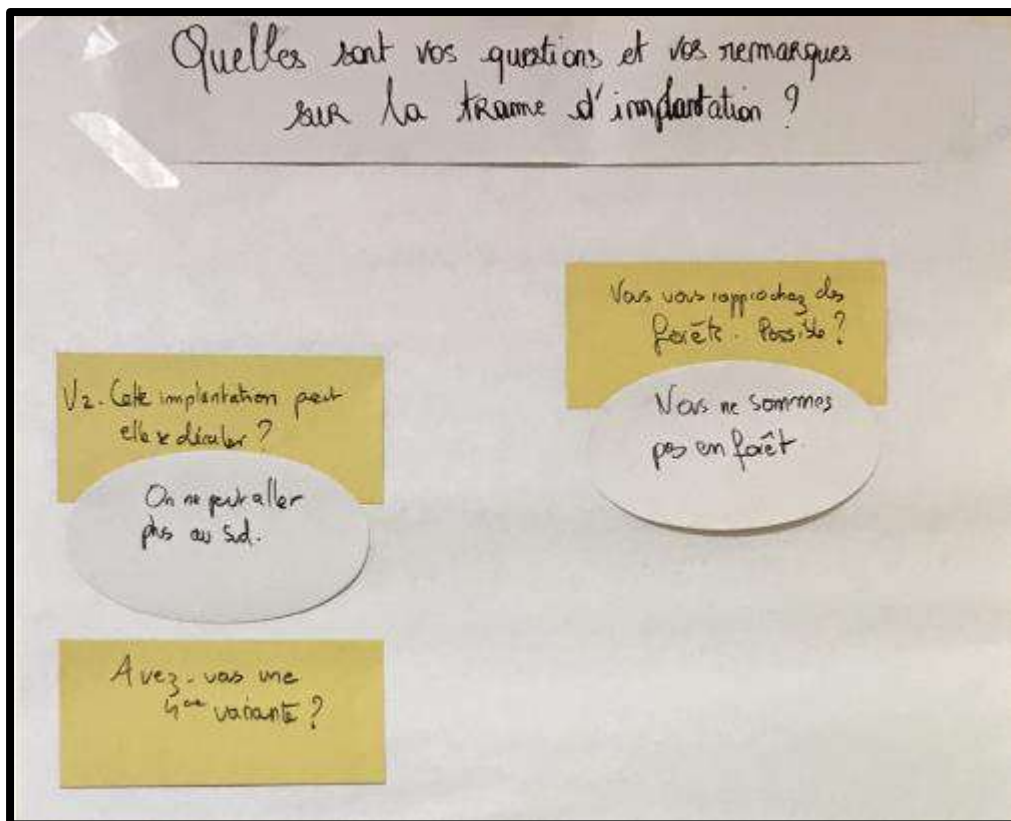 Quelles sont vos questions et vos remarques
sur la trame d'implantation ?
V2. Cette implantation peut
elle se décaler ?
On ne peut aller
plus au Sud.
Avez-vous une
4ème variante ?
Vous vous rapprochez des
forêts. Possible ?
Nous ne sommes
pas en forêt.